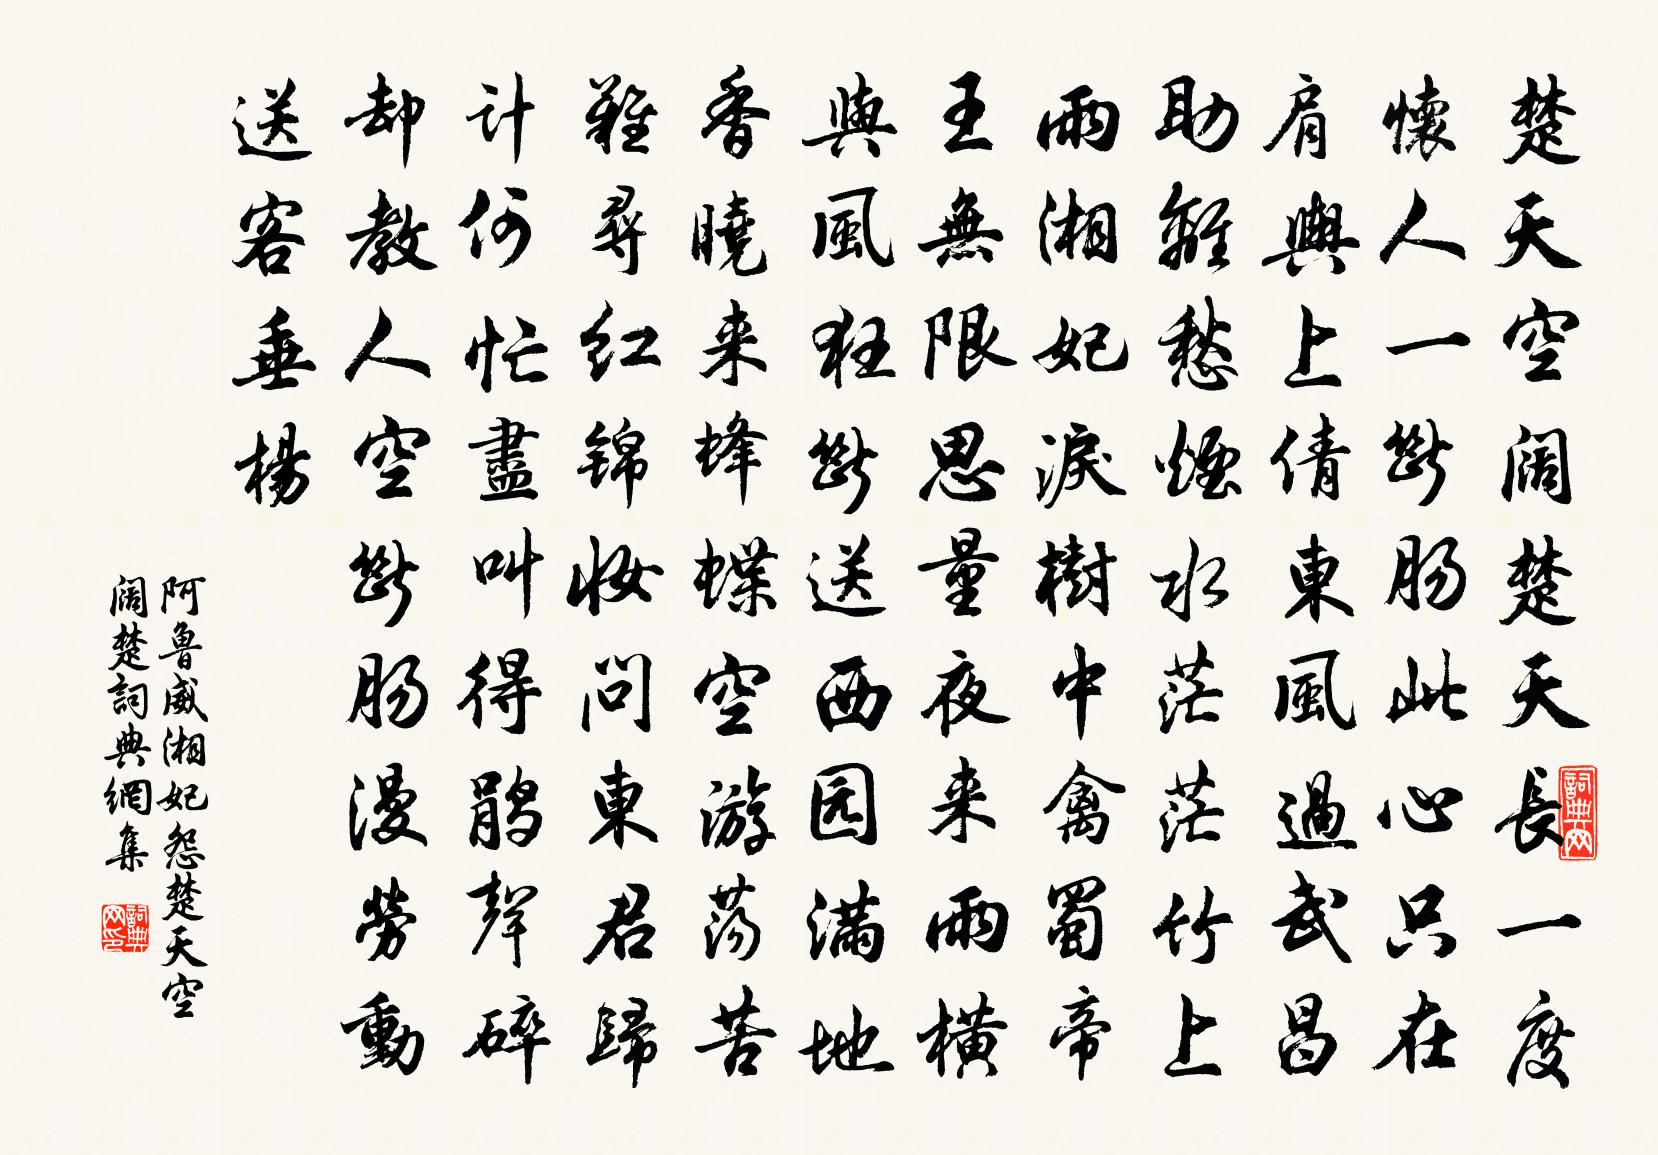 楚天空阔楚天長一度
懷人一斷肠此心只在
肩輿上倩東風過武昌
助離愁烟水茫茫竹上
雨湘妃淚樹中禽蜀帝
王無限思量夜来雨横
與風狂斷送西园满地
香曉来蜂蝶空游荡苦
難尋红锦妝問東君歸
计何忙盡叫得鹃聲碎
却教人空斷肠漫勞動
送客垂楊
阿魯威湘妃怨楚天空
阔楚詞典網集
詞典网
詞典网印